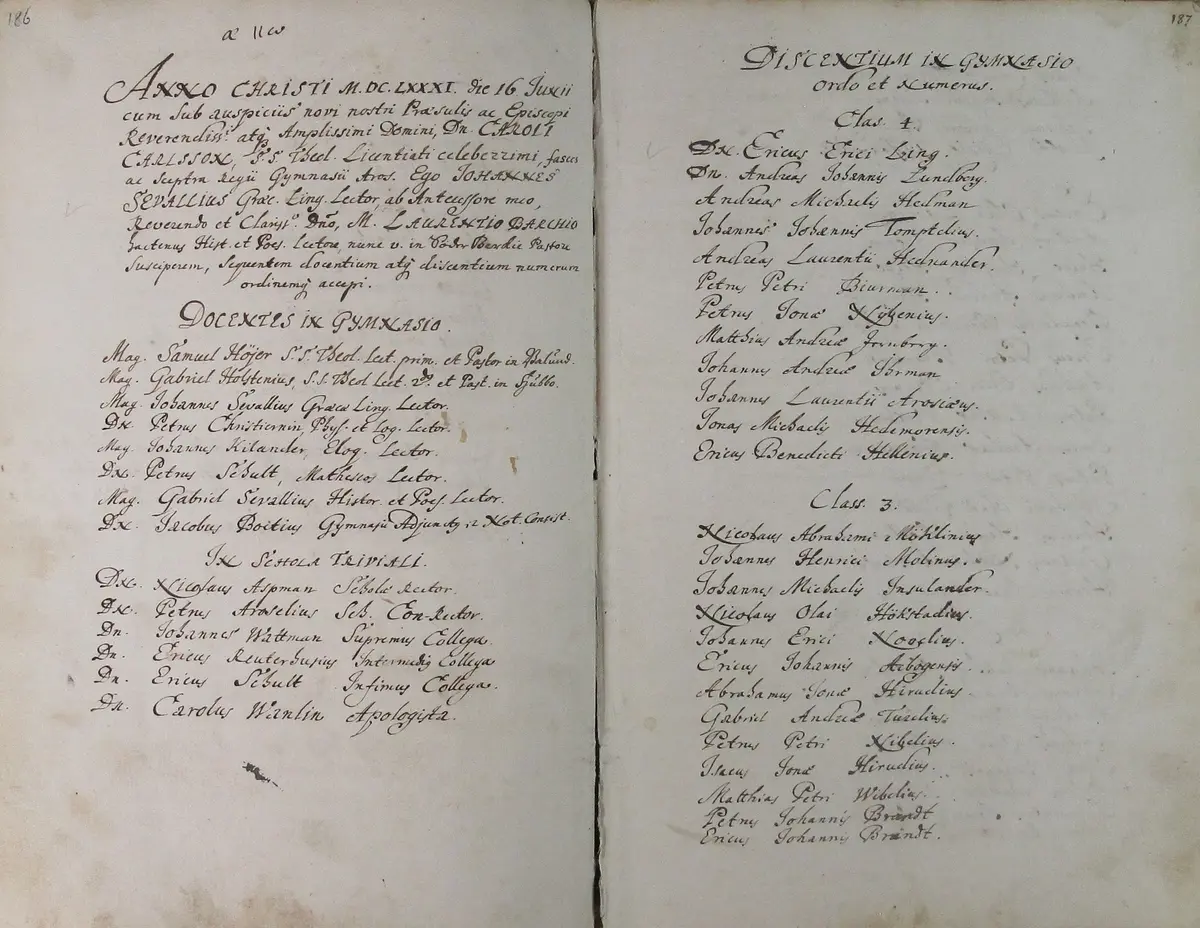 186
ANNO CHRISTI M.DC.LXXXI. die 16 Junii
cum sub auspiciis novi nostri Præsulis ac Episcopi
Reverendissi atq Amplissimi Domini, Dn. CAROLI
CARLSSON, S.S. Theol. Licentiati celeberrimi, fasces
ac sceptra Regii Gymnasii Aros. Ego JOHANNES
SEVALLIUS Græc. Ling. Lector, ab Antecessore meo,
Reverendo et Clariss. Dno, M. LAURENTIO BARCHIO
hactenus Hist. et Poes. Lectore, nunc v. in Söder Berckie Pastore
susciperem, sequentem docentium atq discentium numerum
ordinemq accepi.
DOCENTES IN GYMNASIO.
Mag. Samuel Höjer S.S. Theol. Lect. prim. et Pastor in Balund.
Mag. Gabriel Holstenius, S.S. Theol Lect. 2d9. et Past. in
Mag. Johannes Sevallius Græcæ Ling. Lector.
Dn. Petrus Christiernin, Phys. et Log. Lector.
Mag. Johannes Kilander, Eloq. Lector.
Dn. Petrus Schult, Matheseos Lector.
Mag. Gabriel Sevallius Histor. et Poes. Lector.
Dn. Jacobus Boëtius Gymnasii Adjunctq Not. Consist.
IN SCHOLA TRIVIALI.
Dn. Nicolaus Aspman Scholæ Rector.
Dn. Petrus Aroselius Sch. Con-Rector.
Dn. Johannes Wattman Supremus Collega.
Dn. Ericus Reuterhusius Intermediq Collega
Dn. Ericus Schult Infimus Collega.
Dn. Carolus Wanlin Apologista.
187
DISCENTIUM IN GYMNASIO
ordo et Numerus.
Clas. 4.
Dn. Ericus Erici Ling.
Dn. Andreas Johannis Lundberg.
Andreas Michaelis Hedman
Johannes Johannis Tomptelius.
Andreas Laurentii Hednander.
Petrus Petri Biurman.
Petrus Jonæ Nibenius.
Matthias Andreæ Jernberg.
Johannes Andreæ Ihrman
Johannes Laurentii Arosiæus.
Jonas Michaelis Hedemorensis.
Ericus Benedicti Hellenius.
Class. 3.
Nicolaus Abrahami Möhlinius
Johannes Henrici Molinus.
Johannes Michaelis Insulander.
Nicolaus Olai Hökstadius.
Johannes Erici Norælius.
Ericus Johannis Arbogensis.
Abrahamus Jonæ Hirudius.
Gabriel Andreæ Turelius.
Petrus Petri Nibelius.
Isacus Jonæ Hirudius.
Matthias Petri Wibelius.
Petrus Johannis Brandt
Ericus Johannis Brandt.